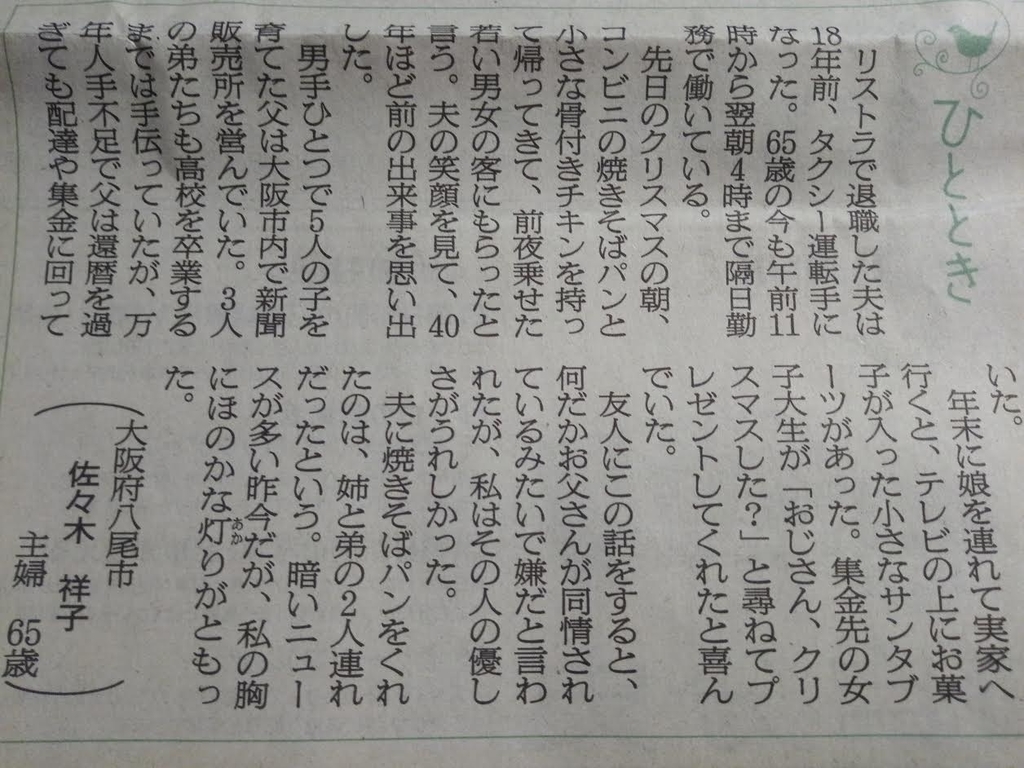 ひととき
リストラで退職した夫は
18年前、タクシー運転手に
なった。65歳の今も午前11
時から翌朝4時まで隔日勤
務で働いている。
先日のクリスマスの朝、
コンビニの焼きそばパンと
小さな骨付きチキンを持っ
て帰ってきて、前夜乗せた
若い男女の客にもらったと
言う。夫の笑顔を見て、40
年ほど前の出来事を思い出
した。
男手ひとつで5人の子を
育てた父は大阪市内で新聞
販売所を営んでいた。3人
の弟たちも高校を卒業する
までは手伝っていたが、万
年人手不足で父は還暦を過
ぎても配達や集金に回って
いた。
年末に娘を連れて実家へ
行くと、テレビの上にお菓
子が入った小さなサンタブ
ーツがあった。集金先の女
子大生が「おじさん、クリ
スマスした?」と尋ねてプ
レゼントしてくれたと喜ん
でいた。
友人にこの話をすると、
何だかお父さんが同情され
ているみたいで嫌だと言わ
れたが、私はその人の優し
さがうれしかった。
夫に焼きそばパンをくれ
たのは、姉と弟の2人連れ
だったという。暗いニュー
スが多い昨今だが、私の胸
にほのかな灯りがともっ
あか
た。
(大阪府八尾市
佐々木 祥子
主婦 65歳)